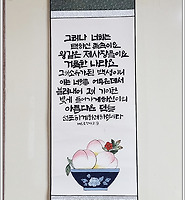 그러나 너희는
택하신 족속이요
왕같은 제사장들이요
거룩한 나라요
그의 소유가 된 백성이니
이는 너희를 어두운데서
불러내어 그의 기이한
빛에 들어가게 하신 이의
아름다운 덕을
선포하게 하려 하심이라